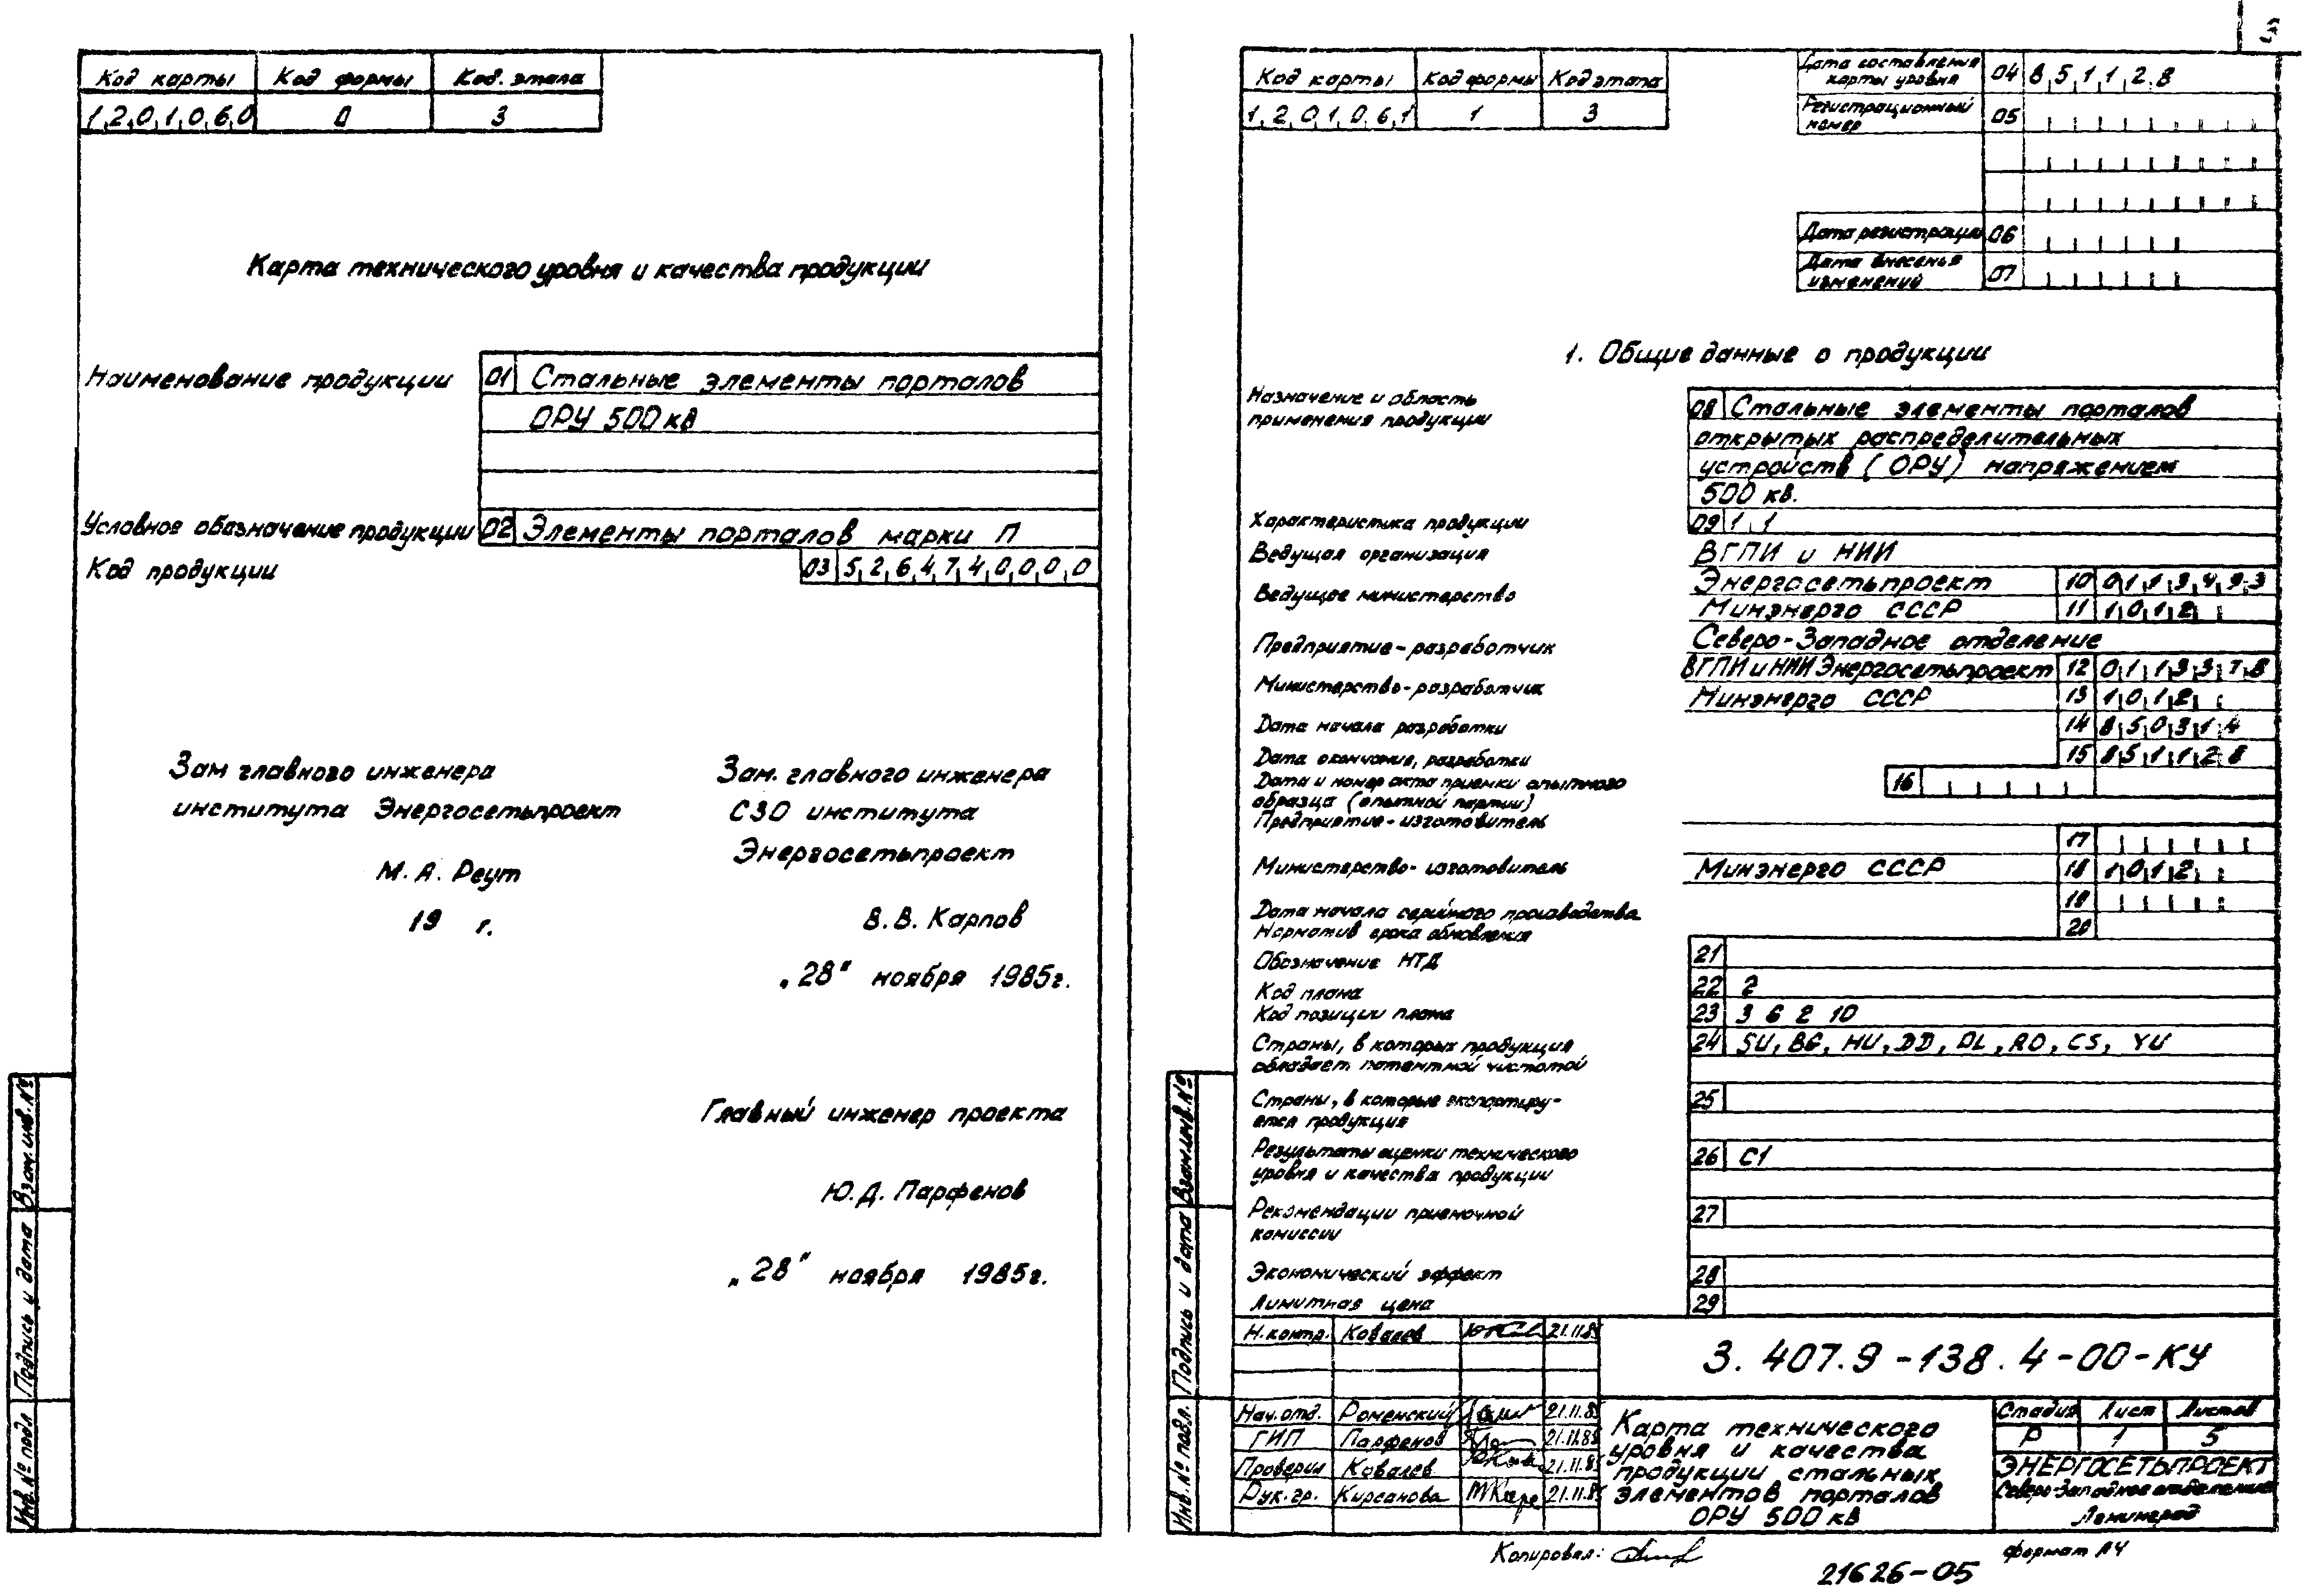 Код карты Код формы Код. этапа
1,2,0,1,0,6,0 0 3
Карта технического уровня и качества продукции
Наименование продукции 01 Стальные элементы порталов
ОРУ 500 кВ
Условное обозначение продукции 02 Элементы порталов марки П
Код продукции 03 5,2,6,4,7,4,0,0,0,0
Зам главного инженера
института Энергосетьпроект
М. А. Реут
19 г.
Зам. главного инженера
СЗО института
Энергосетьпроект
В. В. Карпов
„28" ноября 1985г.
Главный инженер проекта
Ю. Д. Парфенов
„28" ноября 1985г.
Инв. № подл Подпись и дата Взам. инв. №
3
Код карты Код формы Код этапа
1,2,0,1,0,6,1 1 3
Дата составления
карты уровня 04 8,5,1,1,2,8
Регистрационный
номер 05
Дата регистрации 06
Дата внесенья
изменений 07
1. Общие данные о продукции
Назначение и область
применения продукции
08 Стальные элементы порталов
открытых распределительных
устройств (ОРУ) напряжением
500 кв.
Характеристика продукции 09 1,1
Ведущая организация ВГПИ и НИИ
Энергосетьпроект 10 0,1,1,3,4,9,3
Ведущее министерство Минэнерго СССР 11 1,0,1,2
Предприятие-разработчик Северо-Западное отделение
ВГПИ и НИИ Энергосетьпроект 12 0,1,1,3,3,7,8
Министерство-разработчик Минэнерго СССР 13 1,0,1,2
Дата начала разработки 14 8,5,0,3,1,4
Дата окончания, разработки 15 8,5,1,1,2,8
Дата и номер акта приемки опытного
образца (опытной партии) 16
Предприятие-изготовитель
17
Министерство-изготовитель Минэнерго СССР 18 1,0,1,2
Дата начала серийного производства 19
Норматив срока обновления 20
Обозначение НТД 21
Код плана 22 2
Код позиции плана 23 3 6 2 10
Страны, в которых продукция
обладает патентной чистотой
24 SU, BG, HU, DD, PL, RO, CS, YU
Страны, в которые экспортиру-
ется продукция
25
Результаты оценки технического
уровня и качества продукции
26 С1
Рекомендации приемочной
комиссии
27
Экономический эффект 28
Лимитная цена 29
Н.контр. Ковалев 21.11.85
3. 407.9-138. 4-00-КУ
Нач.отд. Роменский 21.11.85
ГИП Парфенов 21.11.85
Проверил Ковалев 21.11.85
Рук. гр. Кирсанова 21.11.85
Карта технического
уровня и качества
продукции стальных
элементов порталов
ОРУ 500 кВ
Стадия Лист Листов
Р 1 5
ЭНЕРГОСЕТЬПРОЕКТ
Северо-Западное отделение
Ленинград
Инв. № подл. Подпись и дата Взам.инв.№
Копировал:
формат А4
21626-05